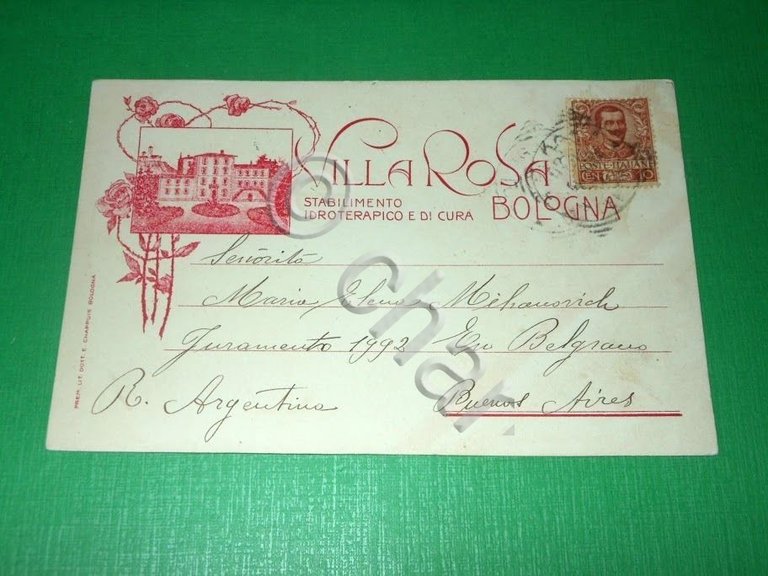 VILLA ROSA
STABILIMENTO
IDROTERAPICO E DI CURA
BOLOGNA
POSTE ITALIANE
CENT. 10
Señorita
Maria Elena Mihanovich
Juramento 1992 En Belgrano
R. Argentina Buenos Aires
PREM. LIT. DOTT. E. CHAPPUIS BOLOGNA
© char